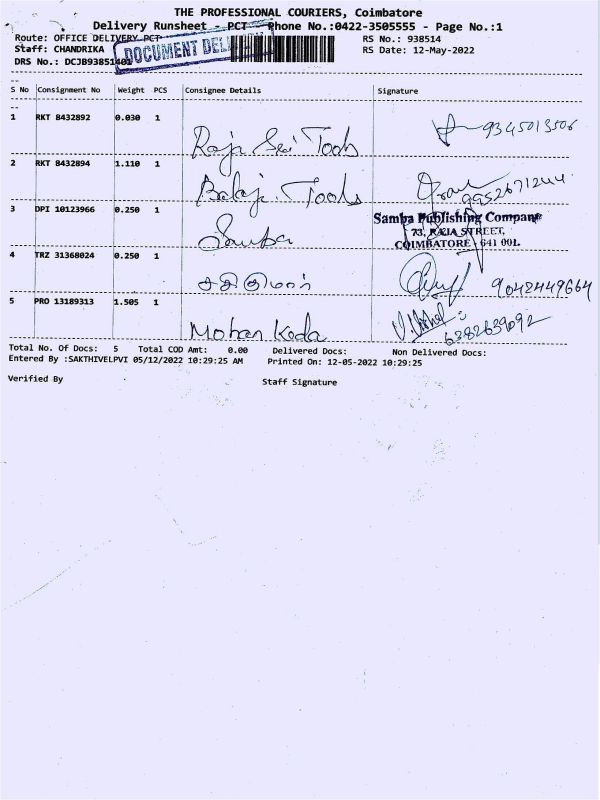 THE PROFESSIONAL COURIERS, Coimbatore
Delivery Runsheet - PCT - Phone No.:0422-3505555 - Page No.:1
Route: OFFICE DELIVERY PCT RS No.: 938514
Staff: CHANDRIKA RS Date: 12-May-2022
DOCUMENT DEL
DRS No.: DCJB93851401
S No Consignment No Weight PCS Consignee Details Signature
1 RKT 8432892 0.030 1 9345013506
Raja Sri Tools
2 RKT 8432894 1.110 1 9952671244
Balaji Tools
3 DPI 10123966 0.250 1 Samba Publishing Company
Samba 73, RAJA STREET,
COIMBATORE - 641 001.
4 TRZ 31368024 0.250 1
சசிகுமார் 9042449664
5 PRO 13189313 1.505 1
Mohan Koda 6382639092
Total No. Of Docs: 5 Total COD Amt: 0.00 Delivered Docs: Non Delivered Docs:
Entered By :SAKTHIVELPVI 05/12/2022 10:29:25 AM Printed On: 12-05-2022 10:29:25
Verified By Staff Signature